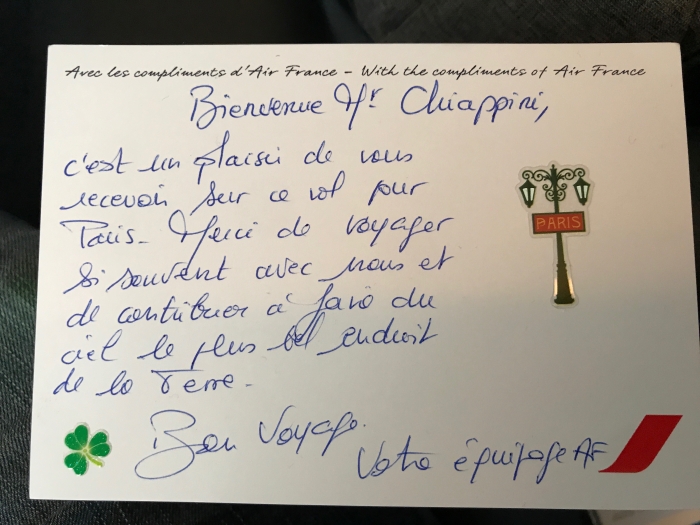 Avec les compliments d'Air France - With the compliments of Air France
Bienvenue Mr Chiappini,
c'est un plaisir de vous
recevoir sur ce vol pour
Paris. Merci de voyager
si souvent avec nous et
de contribuer à faire du
ciel le plus bel endroit
de la Terre.
PARIS
Bon Voyage.
Votre équipage AF